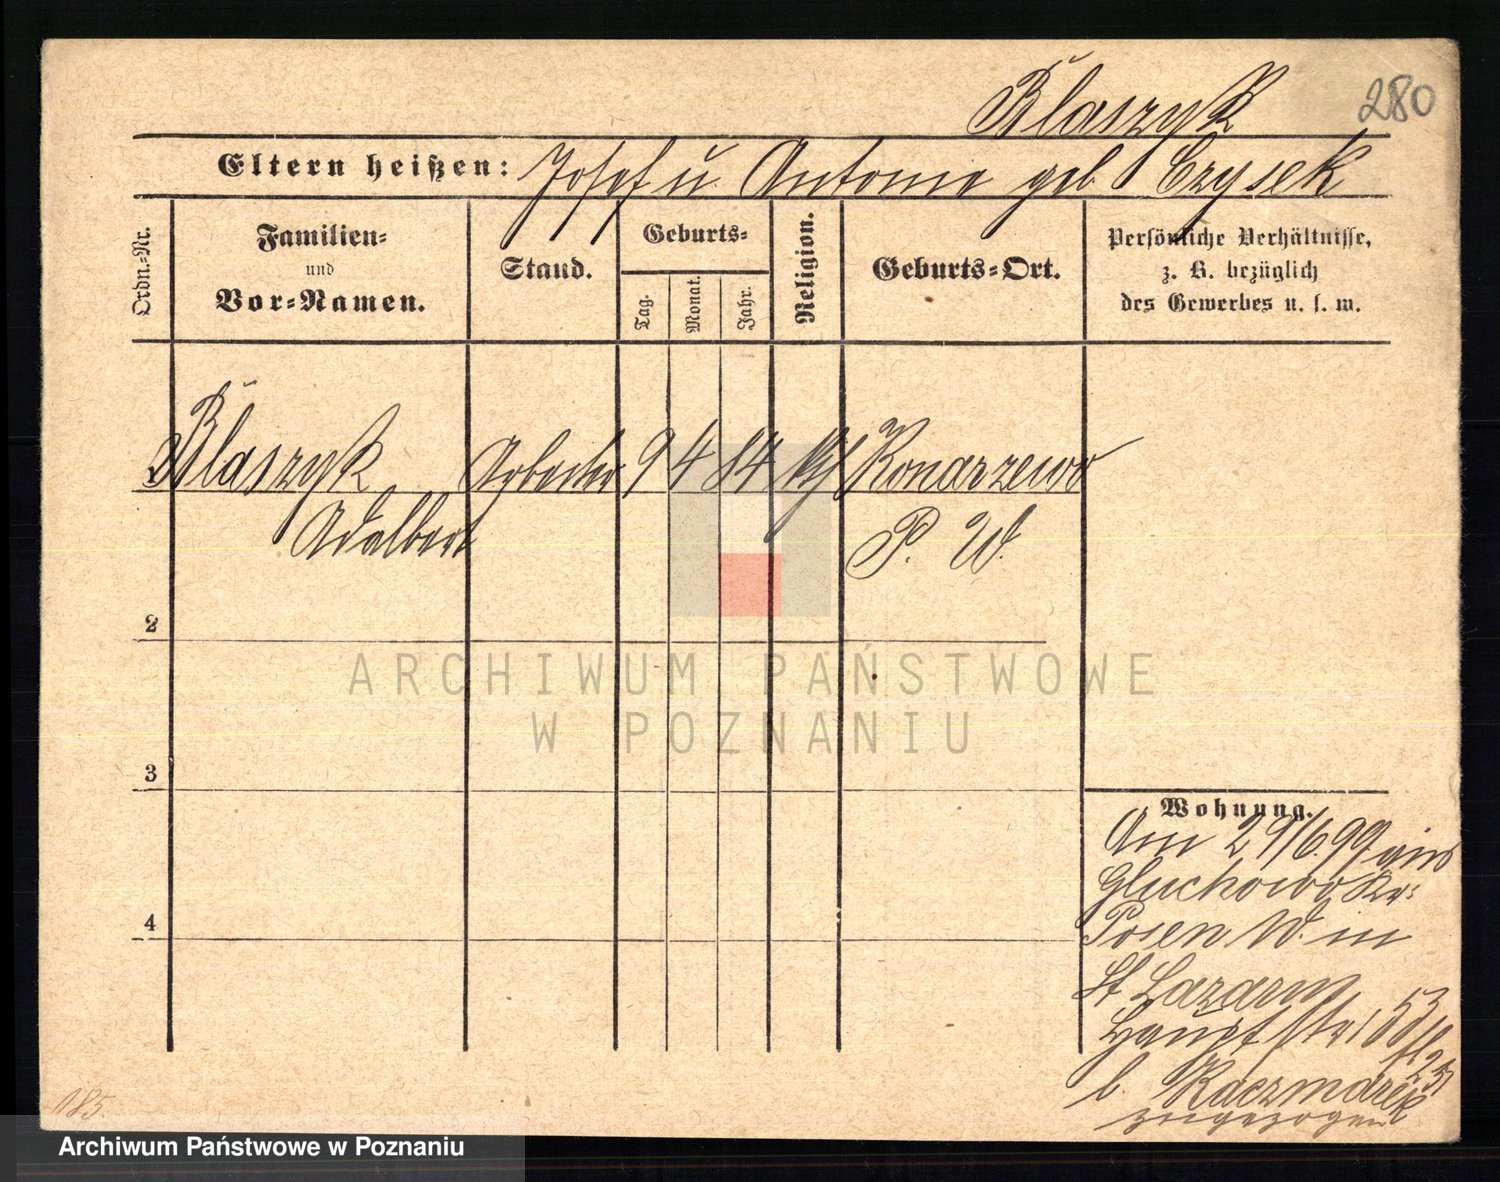 280
Blaszyk
Eltern heißen: Josef u. Antonie geb. Czysek
Ordn.-Nr.
Familien-
und
Vor-Namen.
Stand.
Geburts-
Tag.
Monat.
Jahr.
Religion.
Geburts-Ort.
Persönliche Verhältnisse,
z. B. bezüglich
des Gewerbes u. s. w.
Blaszyk Arbeiter 9 4 84 kth Konarzewo
Adalbert P. W.
2
3
4
Wohnung.
Am 29/6.99 aus
Gluchowo Kr.
Posen W. in
St Lazarus
Hauptstr 53
b. Kaczmarek
zugezogen
185
ARCHIWUM PAŃSTWOWE
W POZNANIU
Archiwum Państwowe w Poznaniu